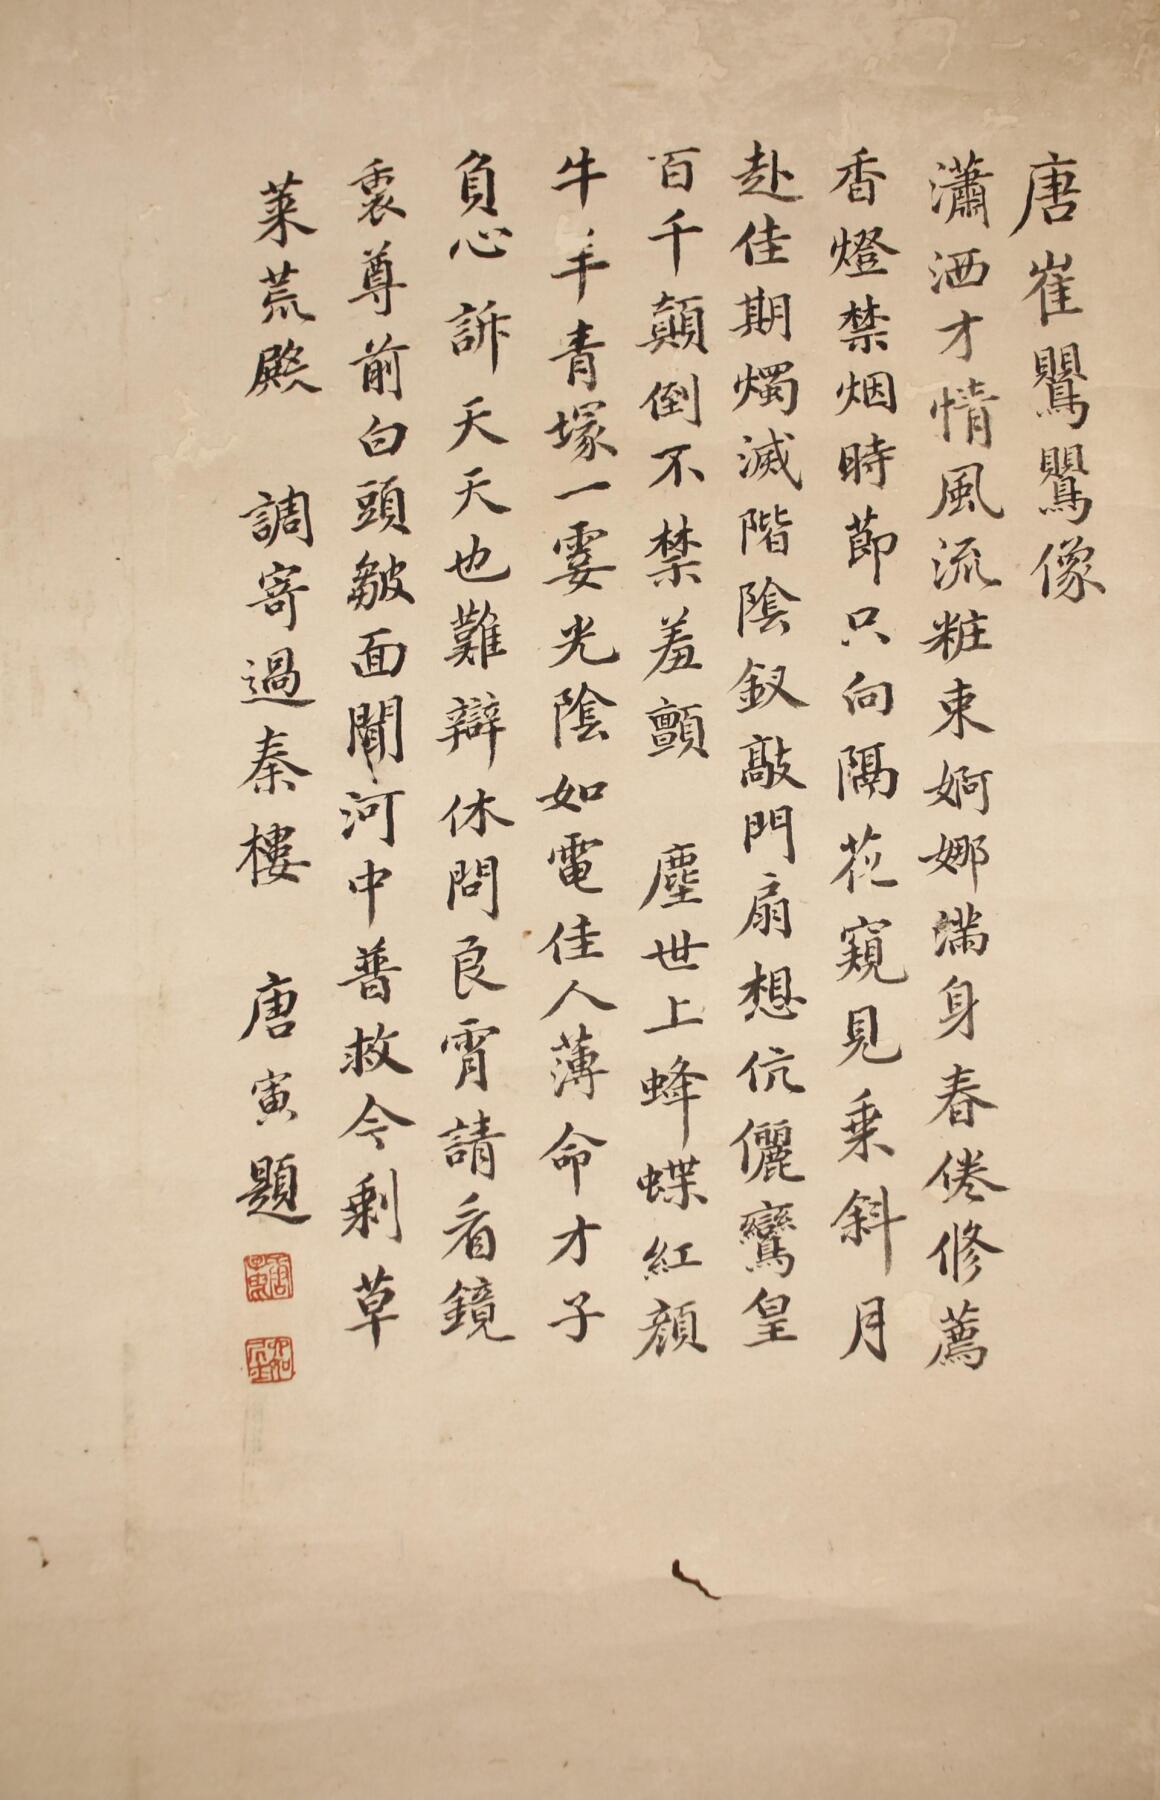 唐崔鸎鸎像
瀟洒才情風流粧束婀娜滿身春倦修薦
香燈禁烟時節只向隔花窺見乗斜月
赴佳期燭滅階陰釵敲門扇想伉儷鸞皇
百千顛倒不禁羞顫 塵世上蜂蝶紅顔
牛羊青塚一霎光陰如電佳人薄命才子
負心訴天天也難辯休問良宵請看鏡
裏尊前白頭皺面聞河中普救今剩草
萊荒殿 調寄過秦樓 唐寅題
唐寅